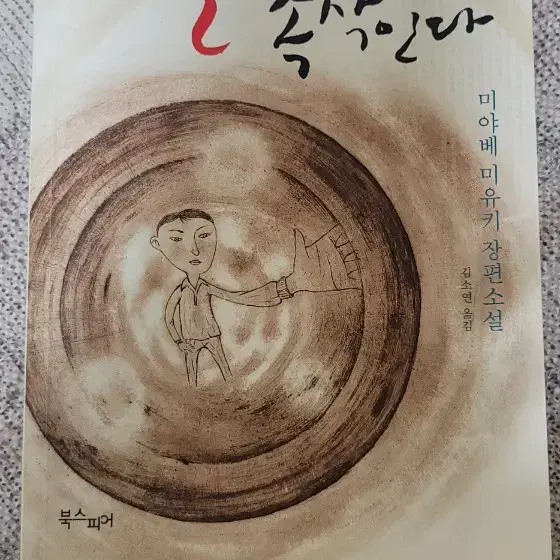 속삭인다
미야베 미유키 장편소설
김소연 옮김
북스피어